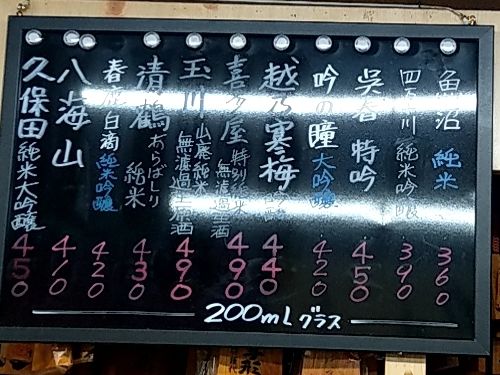 魚沼 純米 360
四万十川 純米吟醸 390
呉春 特吟 450
吟の瞳 大吟醸 420
越乃寒梅 440
喜多屋 特別純米 無濾過生酒 490
玉川 山廃純米 無濾過生原酒 490
清鶴 あらばしり 純米 430
春鹿 白滴 純米吟醸 420
八海山 410
久保田 純米大吟醸 450
200mL グラス